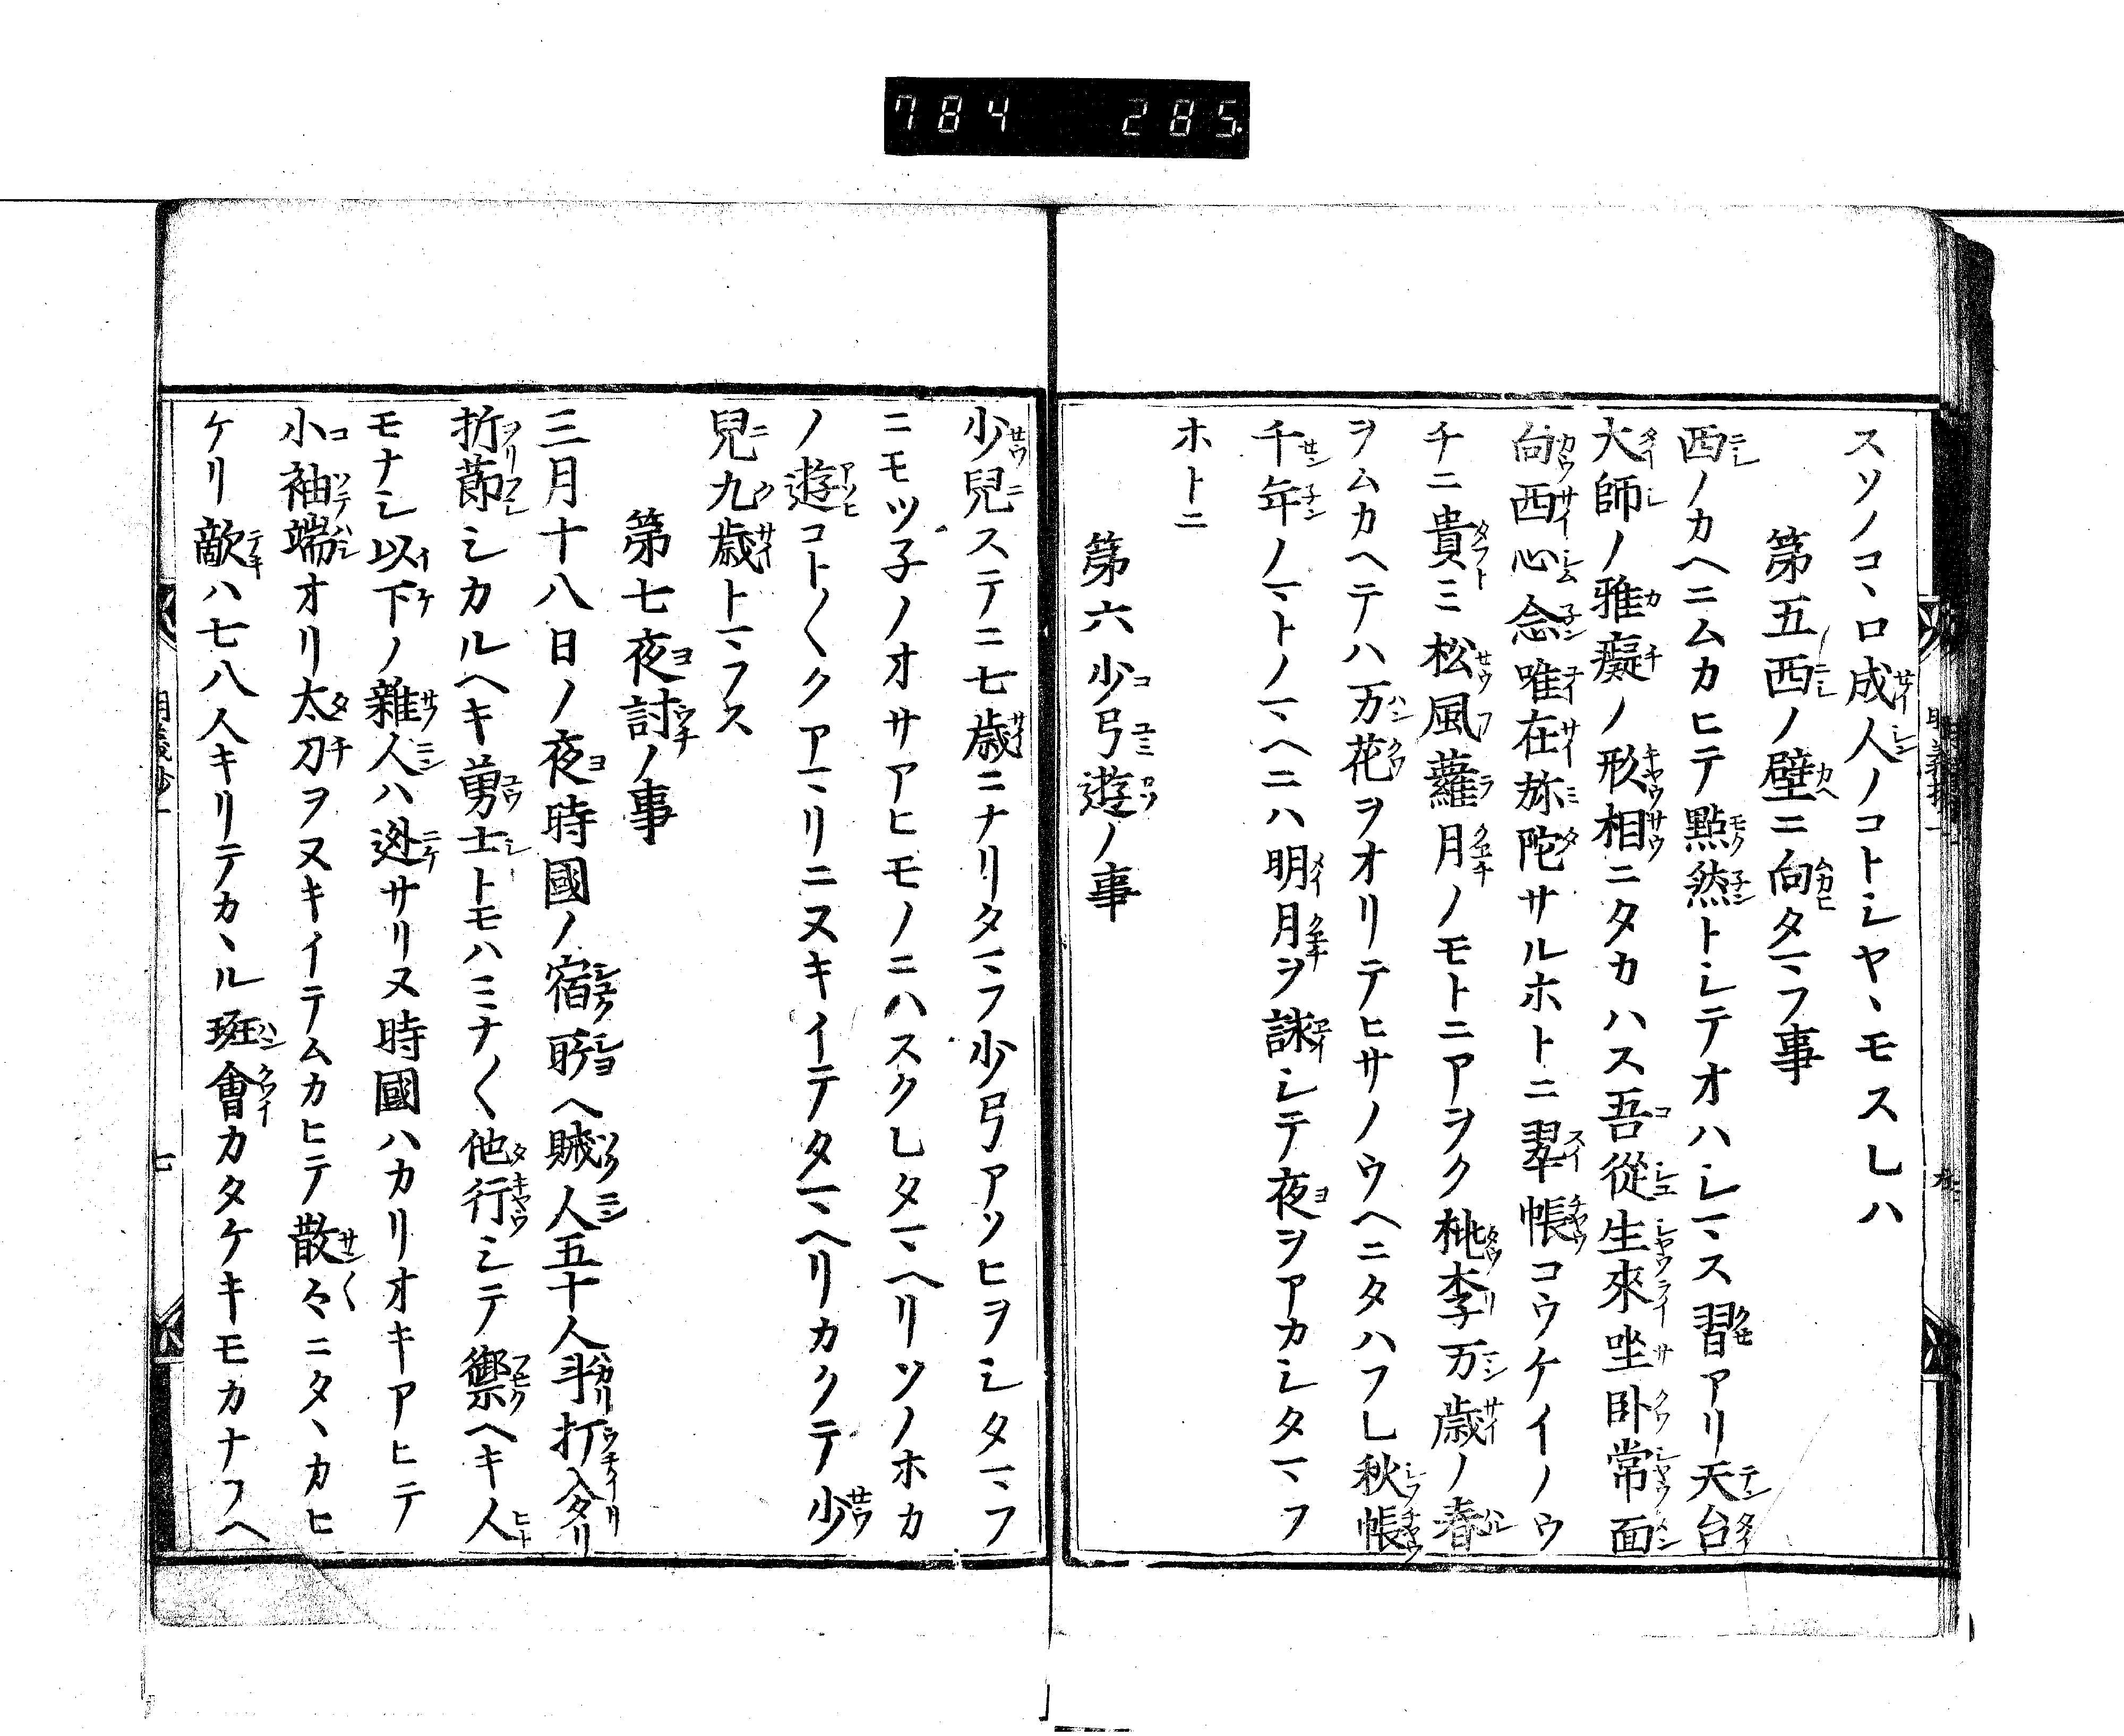 784 285
スソノコヽロ成人ノコトシヤヽモスレハ
第五西ノ壁ニ向タマフ事
西ノカヘニムカヒテ默然トシテオハシマス習アリ天台
大師ノ雅癡ノ形相ニタカハス吾從生來坐卧常面
向西心念唯在弥陀サルホトニ翠帳コウケイノウ
チニ貴ミ松風蘿月ノモトニアヲク桃李万歳ノ春
ヲムカヘテハ万花ヲオリテヒサノウヘニタハフレ秋帳
千年ノマトノマヘニハ明月ヲ詠シテ夜ヲアカシタマフ
ホトニ
第六少弓遊ノ事
少兒ステニ七歳ニナリタマフ少弓アソヒヲシタマフ
ニモツ子ノオサアヒモノニハスクレタマヘリソノホカ
ノ遊コト〱クアマリニヌキイテタマヘリカクテ少
兒九歳トマフス
第七夜討ノ事
三月十八日ノ夜時國ノ宿所ヘ賊人五十人斗打入タリ
折節シカルヘキ勇士トモハミナ〱他行シテ禦ヘキ人
モナシ以下ノ雜人ハ迯サリヌ時國ハカリオキアヒテ
小袖端オリ太刀ヲヌキイテムカヒテ散々ニタヽカヒ
ケリ敵ハ七八人キリテカヽル班會カタケキモカナフヘ
七